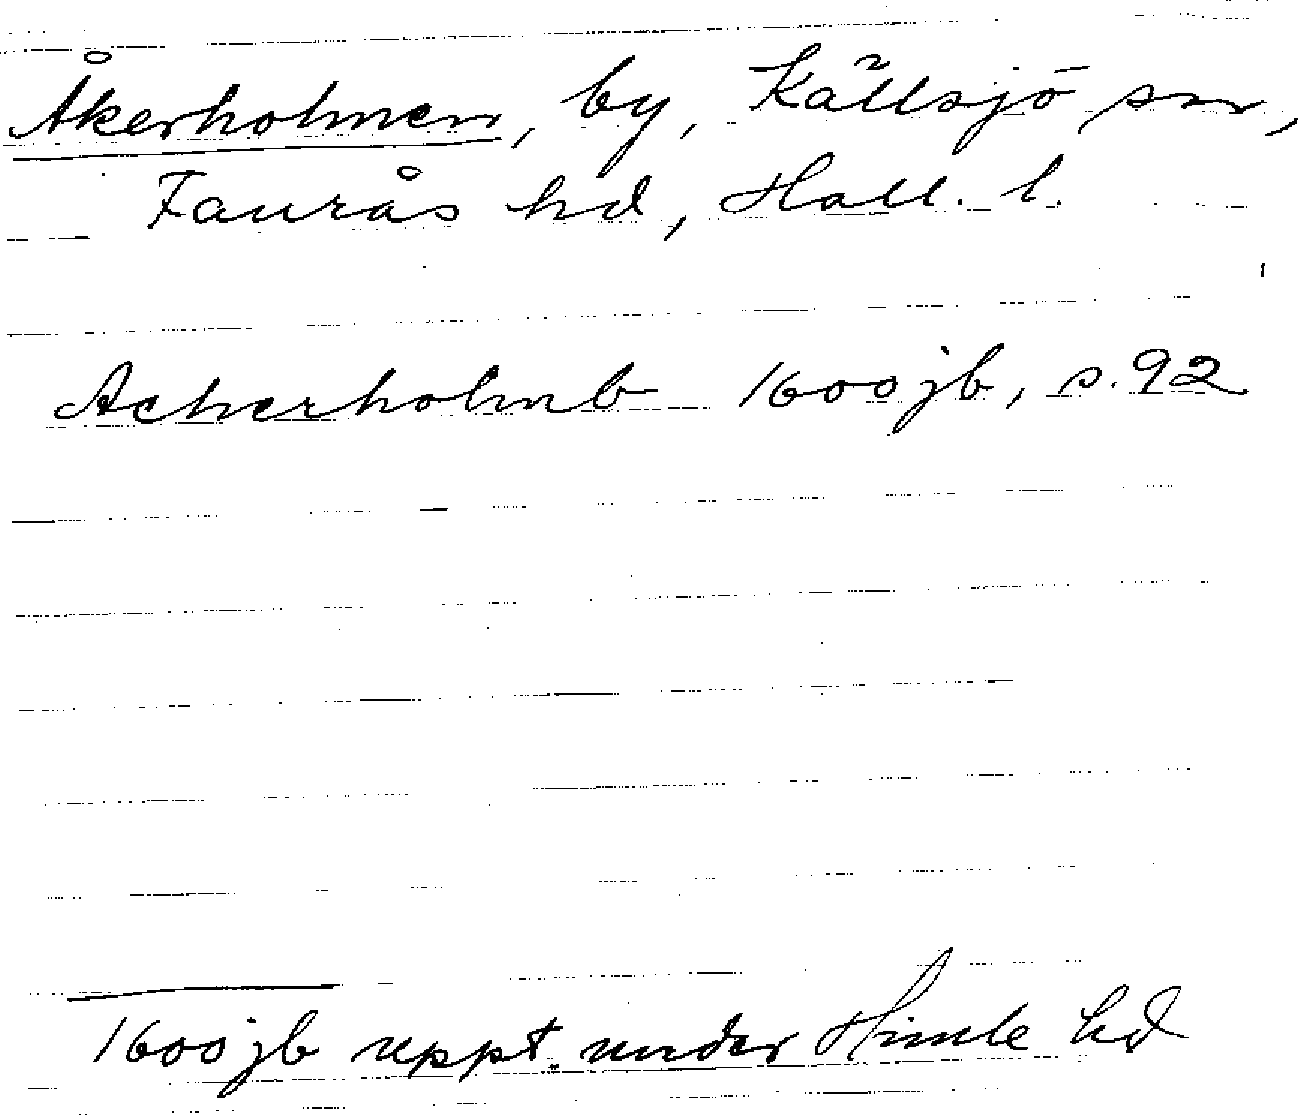 Åkerholmen, by, Källsjö sn,
Faurås hd, Hall. l.
Acherholmb 1600 jb, s. 92
1600 jb uppt. under Himle hd